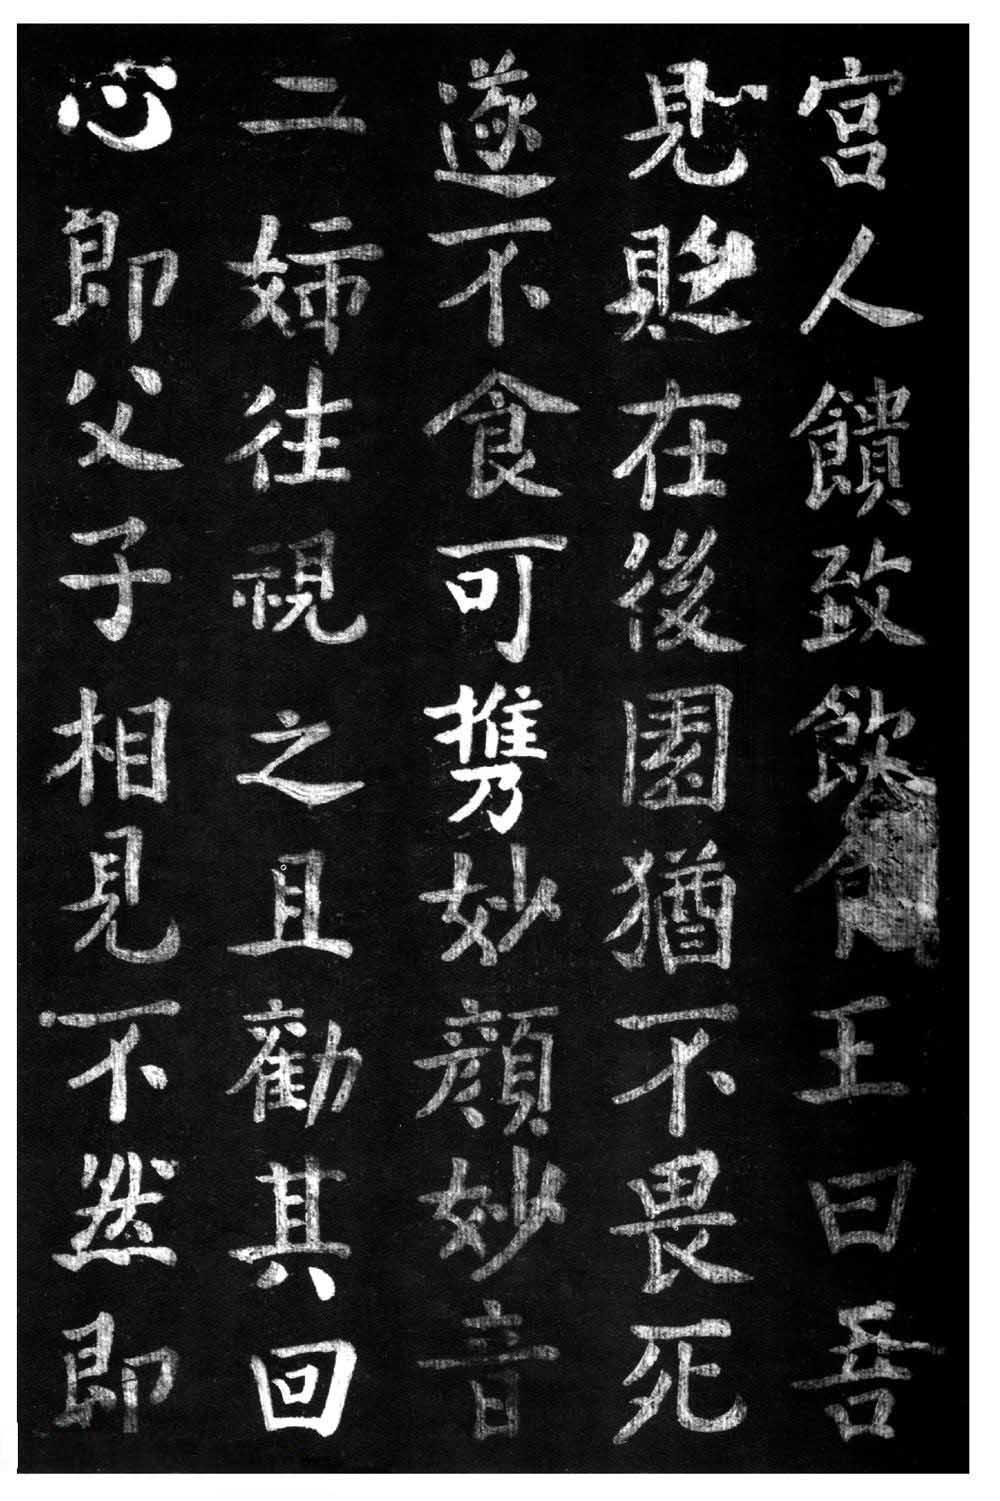 宮人饋致飲王曰吾
見貶在後園猶不畏死
遂不食可携妙顔妙音
二姉往視之且勧其回
心即父子相見不然即